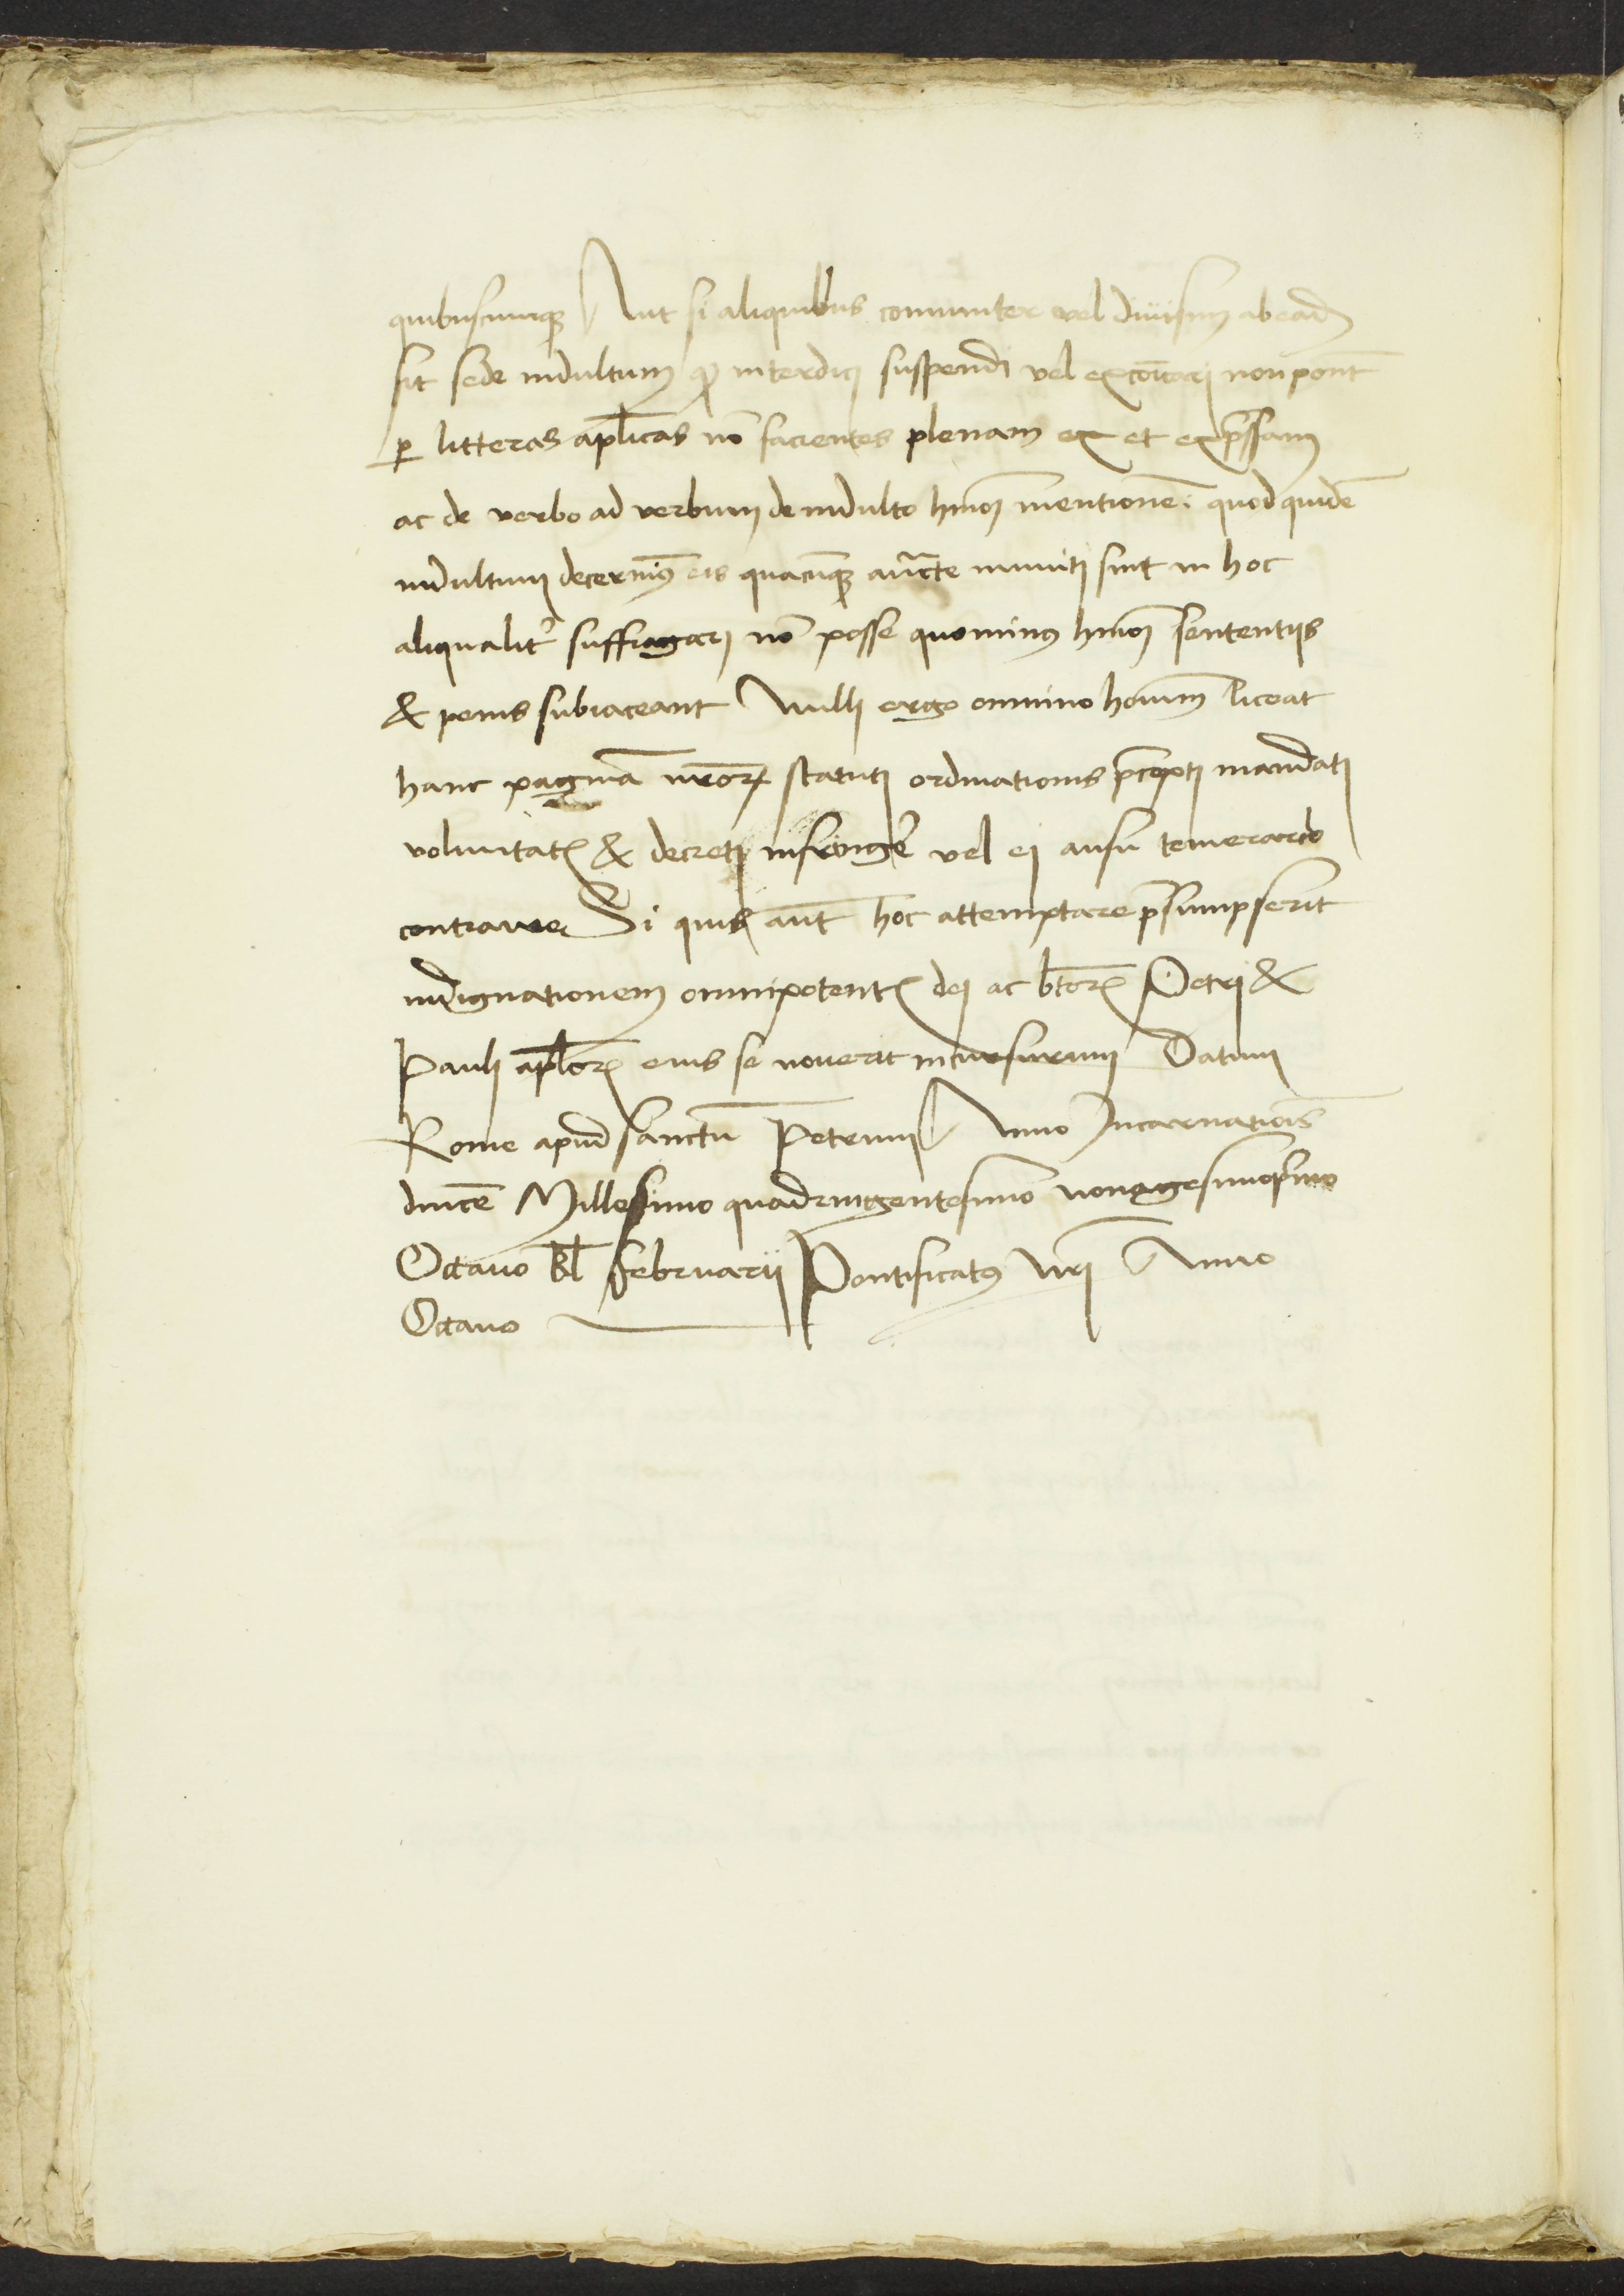 quibuscunq; Aut si aliquibus comuniter vel diuisim ab ead
sit sede indultum q interdici suspendi vel excoicari non pont
p litteras aplicas no facientes plenam ex et expssam
ac de verbo ad verbum de indulto hmoi mentione: quod quide
indultum decernim9 eis quacunq; aucte muniti sint in hoc
aliqualit suffragari no posse quomin9 hmoi sententiis
& penis subiaceant Nulli ergo omnino hoium liceat
hanc pagina nror statuti ordinationis pcepti mandati
voluntatis & decreti infringe vel ei ausu temerario
contraire Si quis aut hoc attemptare psumpserit
indignationem omnipotentis dei ac btor Petri &
Pauli aplor eius se nouerit incursurum Datum
Rome apud sanctu Petrum Anno Incarnationis
dnice Millesimo quadringentesimo nonagesimoprimo
Octauo kl februarii Pontificatus nri Anno
Octauo